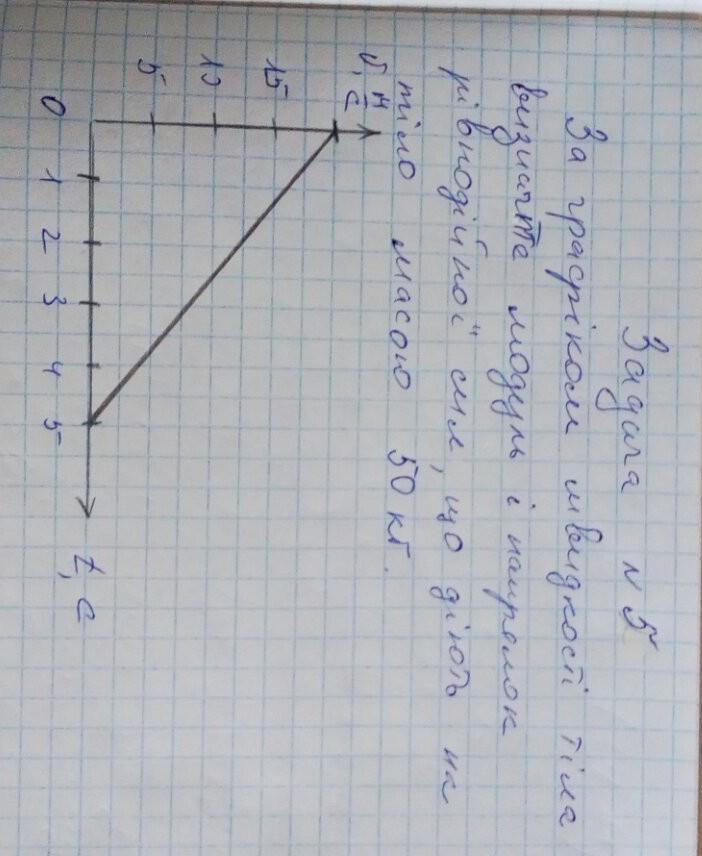 Задача N 5
За графіком швидкості тіла
визначте модуль і напрямок
рівнодійної сил, що діють на
тіло масою 50 кг.
υ, м/с
15
10
5
0 1 2 3 4 5 t, c